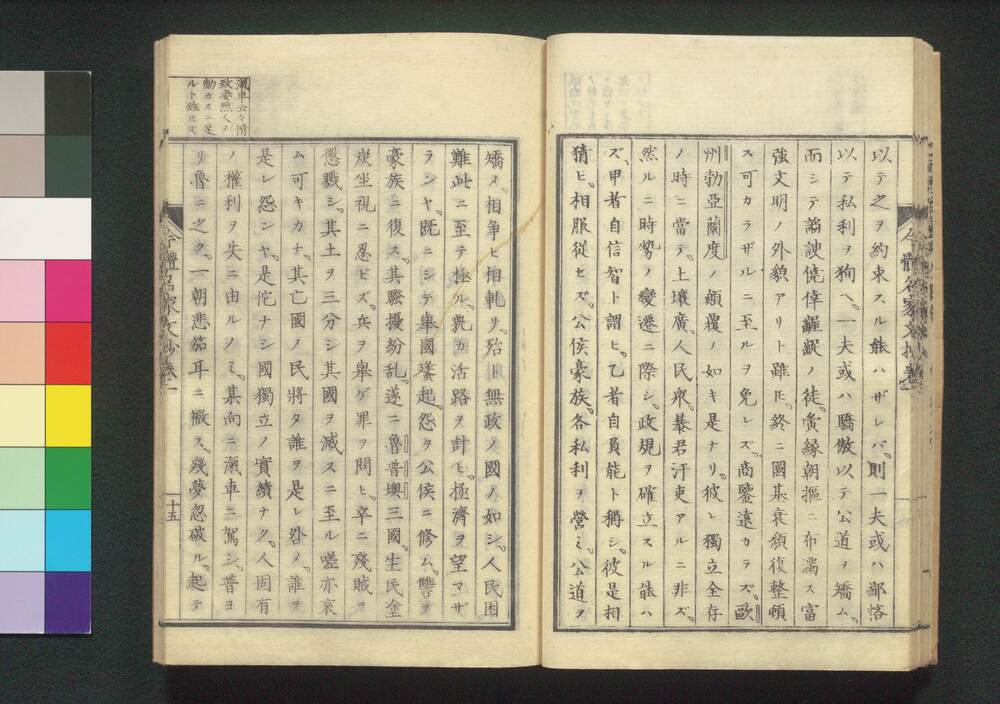 以テ之ヲ約束スル能ハザレバ、則一夫或ハ鄙悋
以テ私利ヲ狥ヘ、一夫或ハ驕傲以テ公道ヲ矯ム。
而シテ謟諛僥倖齷齪ノ徒、夤縁朝樞ニ布滿ス富
強文明ノ外貌アリト雖𪜈、終ニ國基衰頽復整頓
ス可カラザルニ至ルヲ免レズ。商鑒遠カラズ。歐
州勃亞蘭度ノ顛覆ノ如キ是ナリ。彼レ獨立全存
ノ時ニ當テ、土壤廣、人民衆、暴君汙吏アルニ非ズ。
然ルニ時勢ノ變遷ニ際シ、政規ヲ確立スル能ハ
ズ、甲者自信智ト謂ヒ、乙者自負能ト稱シ、彼是相
猜ヒ、相服從セズ、公侯豪族、各私利ヲ營ミ、公道ヲ
今體名家文抄卷二
矯メ、相爭ヒ相軋リ、殆ド無政ノ國ノ如シ。人民困
難此ニ至テ極ル。孰カ活路ヲ計ヒ、拯濟ヲ望マザ
ランヤ。既ニシテ舉國蜂起、怨ヲ公侯ニ修ム、讐ヲ
豪族ニ復ス。其騷擾紛乱、遂ニ魯普墺三國、生民塗
炭坐視ニ忍ビズ、兵ヲ舉ゲ罪ヲ問ヒ、卒ニ殘賊ヲ
懲戮シ、其土ヲ三分シ其國ヲ滅スニ至ル嗟亦哀
ム可キカナ。其亡國ノ民將タ誰ヲ是レ咎メ、誰ヲ
是レ怨ンヤ。是佗ナシ國獨立ノ實績ナク、人固有
ノ權利ヲ失ニ由ルノミ。其向ニ滊車ニ駕シ、普ヨ
リ魯ニ之ク。一朝悲笳耳ニ徹ス、殘夢忽破ル。起テ
滊車云々情
致凄然人ヲ
動カスニ足
ルト雖𪜈文
今體名家文抄卷二
十五